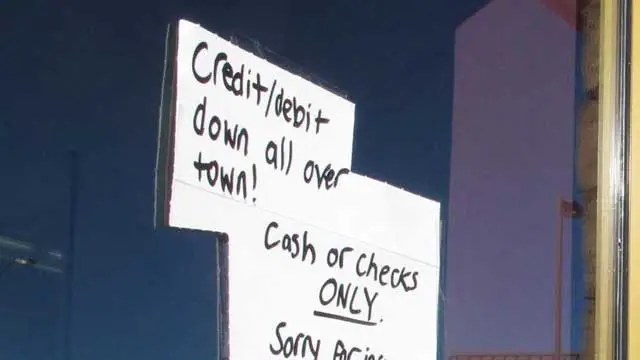 Credit/debit
down all over
town!
Cash or checks
ONLY.
Sorry for